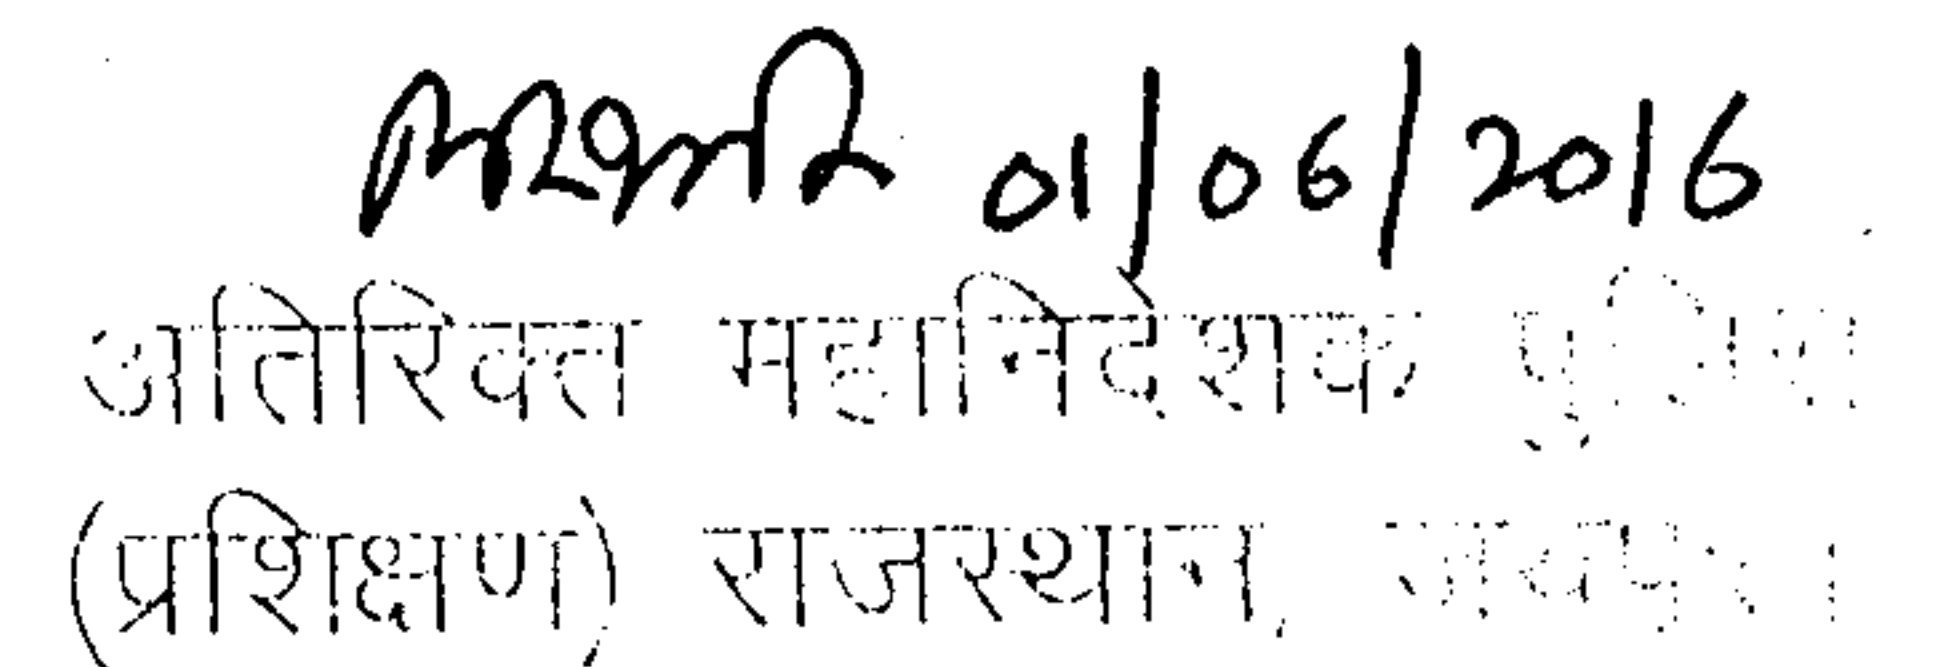 01/06/2016
अतिरिक्त महानिदेशक पुलिस
(प्रशिक्षण) राजस्थान, जयपुर।